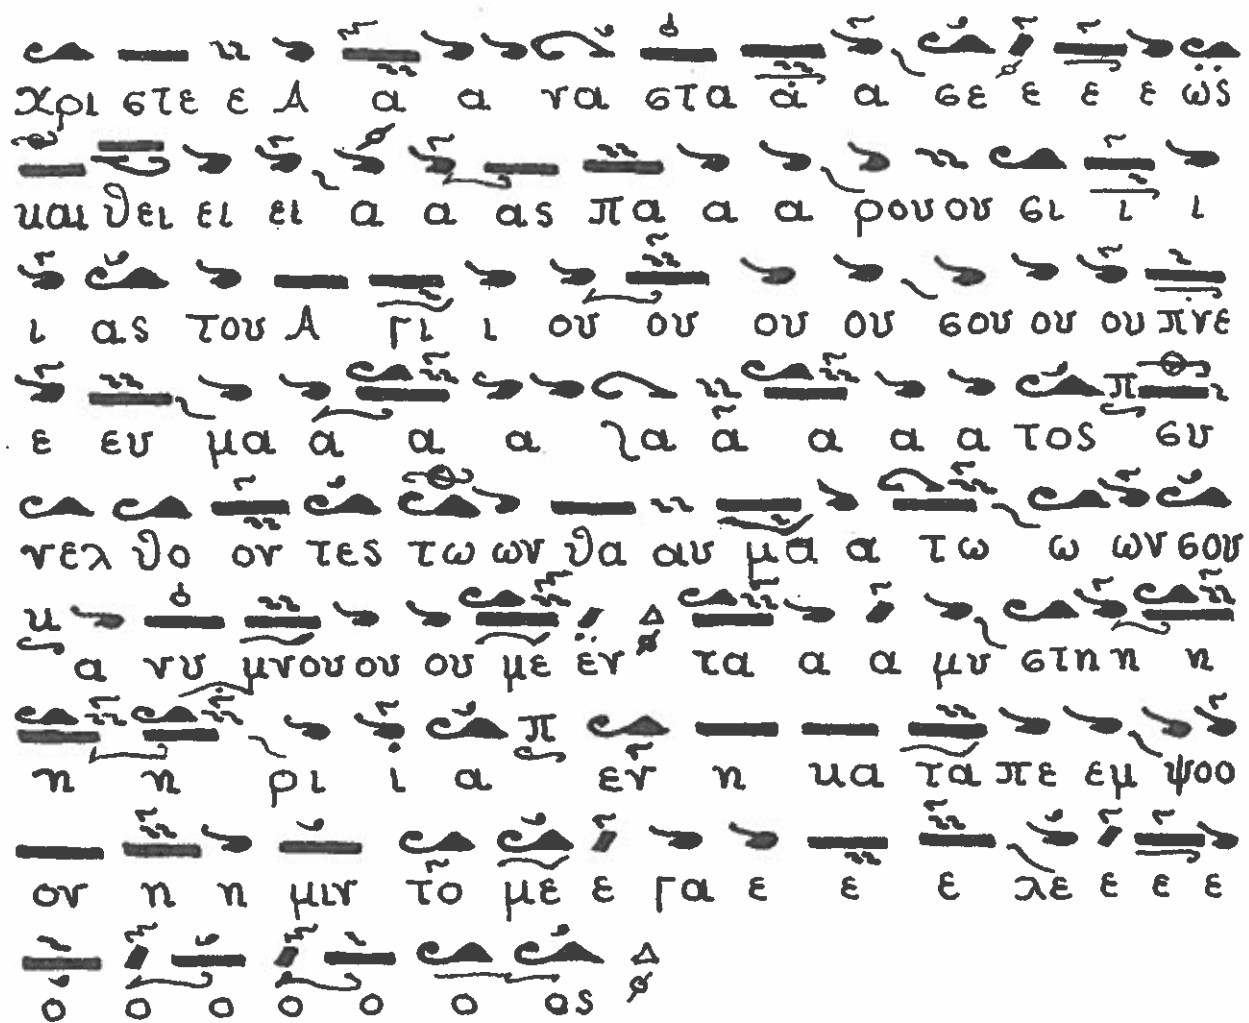 χρι στε ε Α α α να στα α α σε ε ε ε ως
και θει ει ει α α ας πα α α ρου ου σι ι ι
ι ας του Α γι ι ου ου ου ου σου ου ου πνε
ε ευ μα α α α λα α α α α τος συ
νελ θο ον τες τω ων θα αυ μα α τω ω ων σου
α νυ μνου ου ου με εν τα α α μυ στη η η
η η ρι ι α εν η κα τα πε εμ ψο ο
ον η η μιν το με ε γα ε ε ε λε ε ε ε
ο ο ο ο ο ο ος